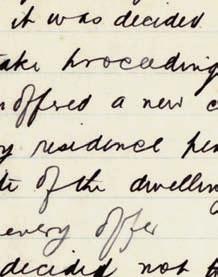 it was decided
take proceeding
offered a new c
residence per
of the dwelling
every offer
decided not